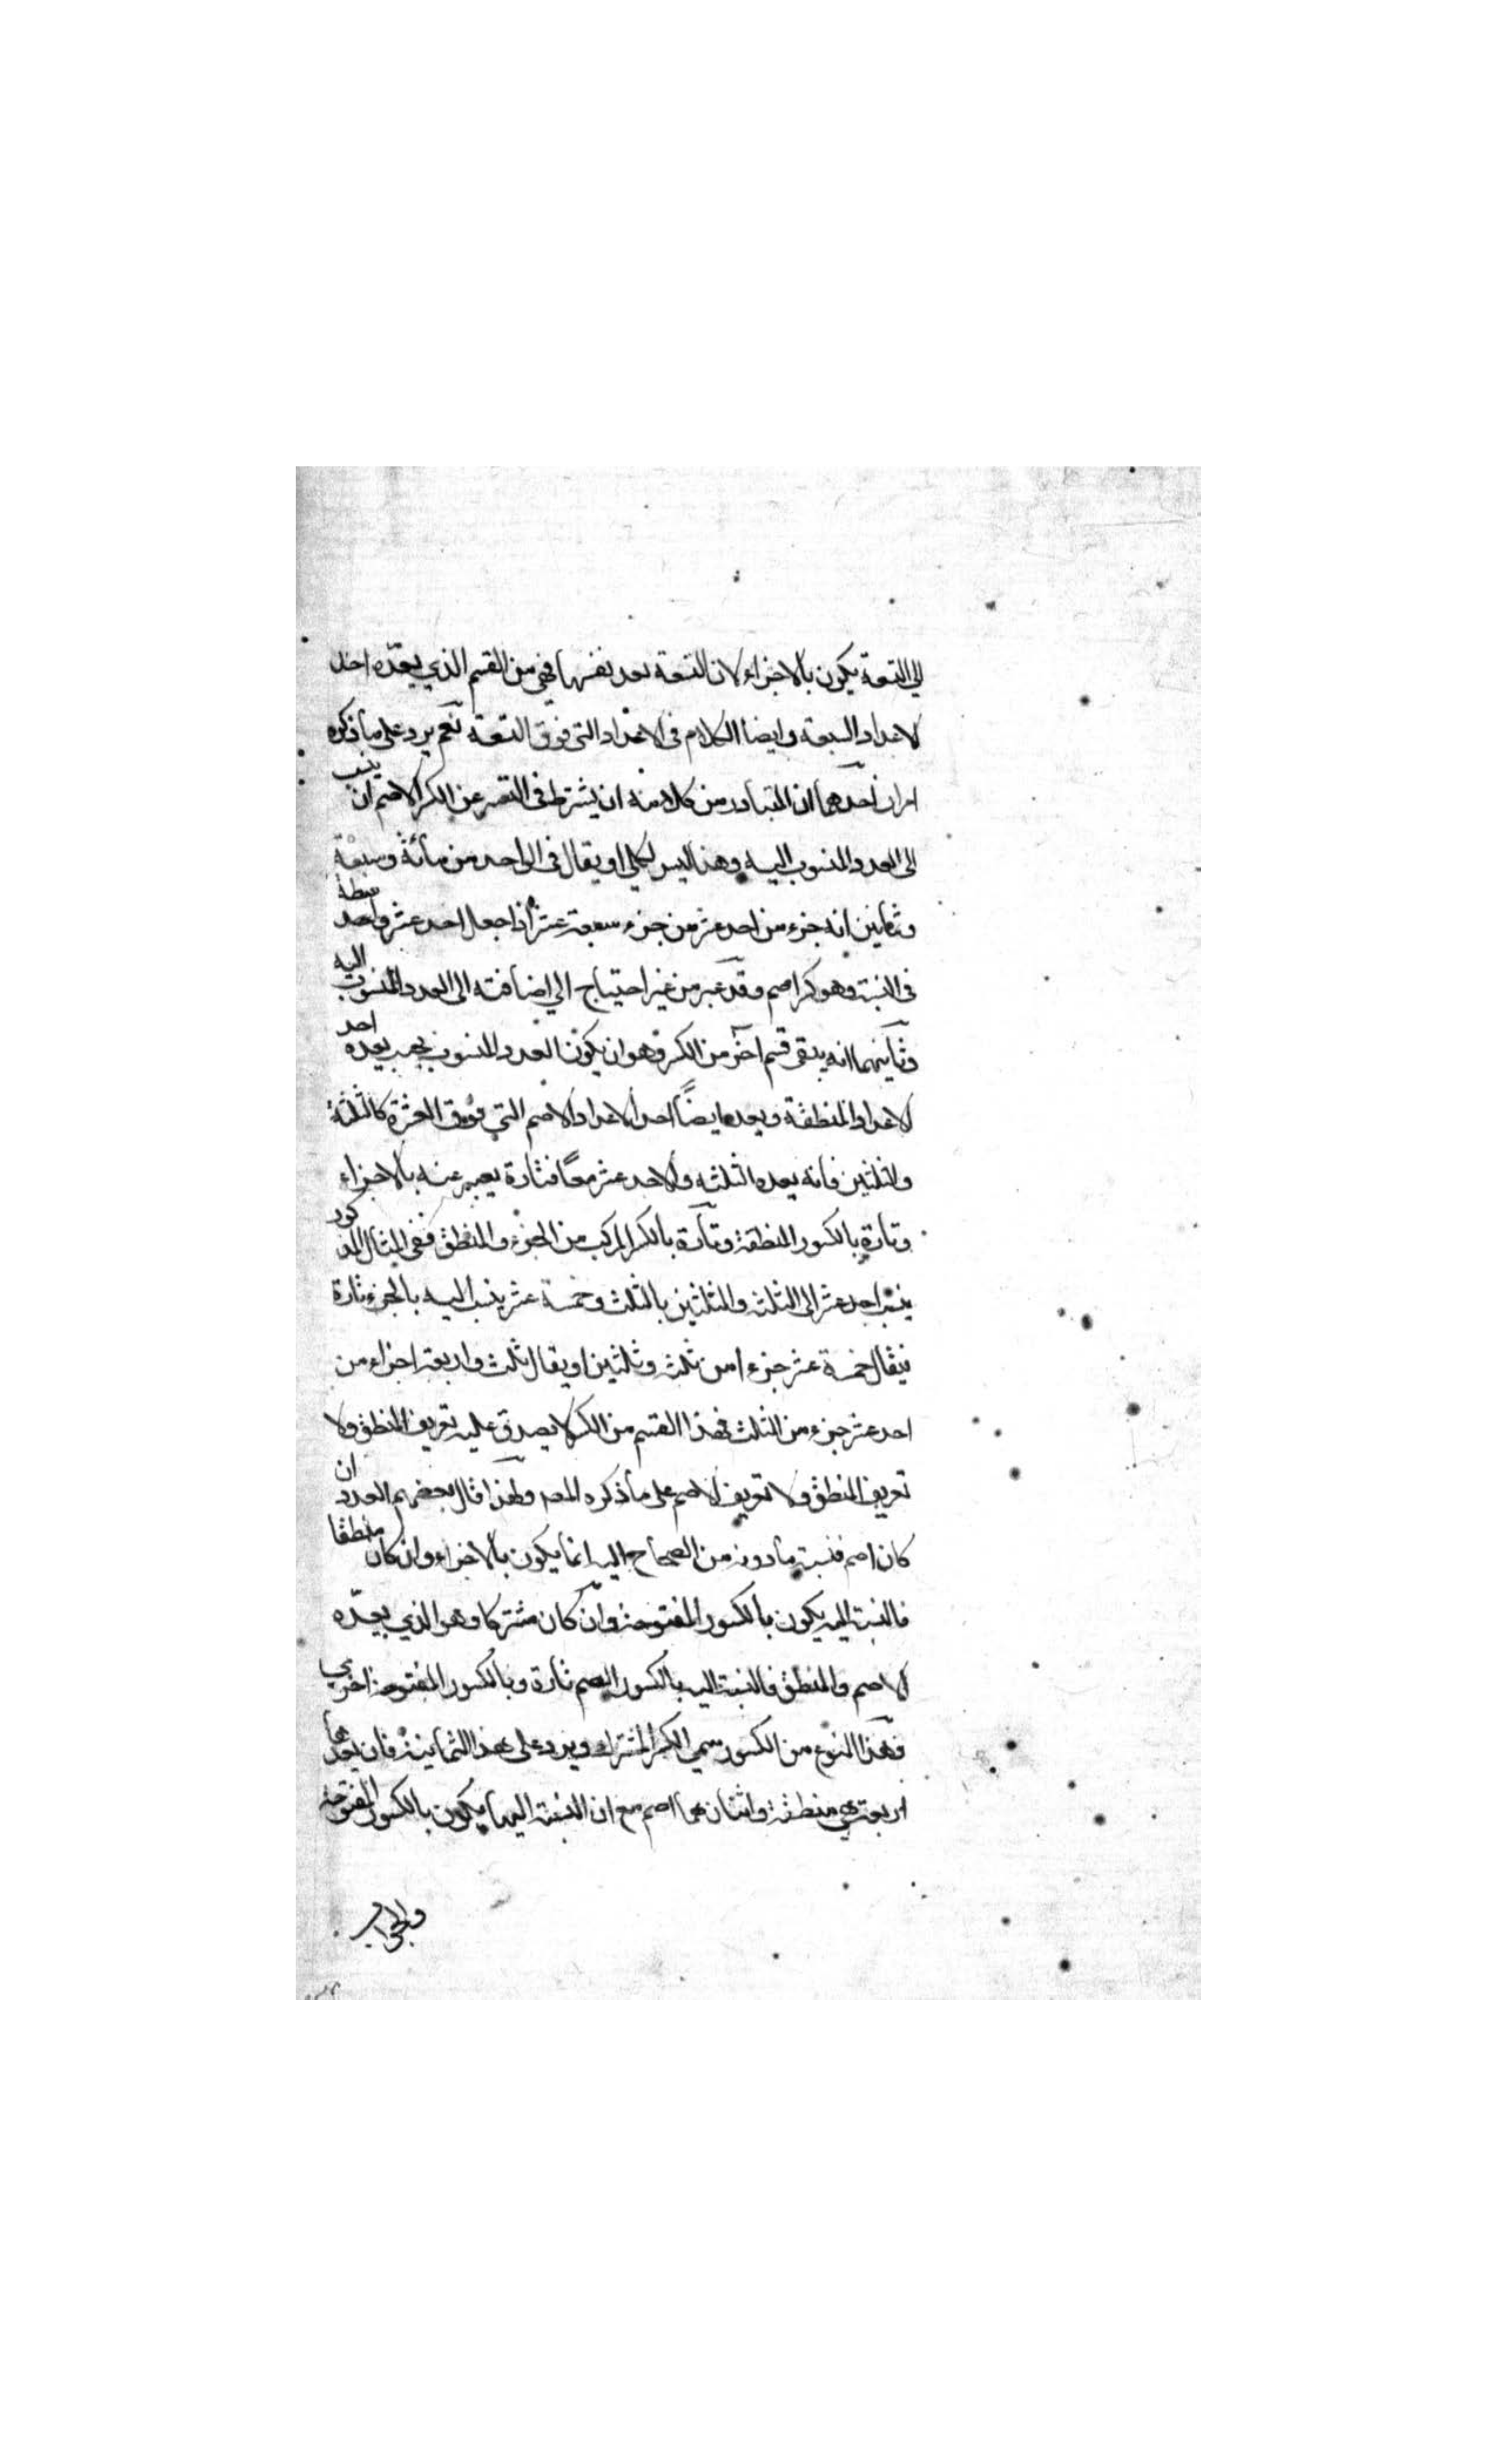 الي التسعة يكون بالاجزاء لان التسعة يعد نفسها فهي من القسم الذي يعدّه احد
الاعداد السبعة وايضا الكلام في الاعداد التي فوق التسعة نعم يرد على ما ذكره
امران احدهما ان المتبادر من كلامه ان يشترط في التعبير عن الكسر الاصم ان ينسب
الى العدد المنسوب اليه وهذا ليس بكلي اذ يقال في الواحد من مائة وسبعة
وثمانين انه جزء من احد عشر من جزء سبعة عشر اذا جعل احد عشر واحد
في النسبة وهو كسر اصم وقد عبر من غير احتياج الي اضافته الى العدد المنسوب اليه
وثانيهما انه يبقى قسم آخر من الكسر وهو ان يكون العدد المنسوب بحيث يعده احد
الاعداد المنطقة ويعده ايضاً احد الاعداد الاصم التي فوق العشرة كالثلثة
والثلثين فانه يعده الثلثه والاحد عشر معًا فتارة يعبر عنه بالاجزاء
وتارة بالكسور المنطقة وتارة بالكسر المركب من الجزء والمنطق ففي المثال المذكور
ينسب احد عشر الى الثلثة والثلثين بالثلث وخمسة عشر ينسب اليه بالجزء تارة
فيقال خمسة عشر جزءا من ثلثة وثلثين او يقال ثلث واربعة اجزاء من
احد عشر جزء من الثلث فهذا القسم من الكسر لا يصدق عليه تعريف المنطق ولا
تعريف المنطق ولا تعريف الاصم على ما ذكره المص ولهذا قال بعضهم العدد ان
كان اصم فنسبة ما دونه من الصحاح اليه انما يكون بالاجزاء وان كان منطقا
فالنسبة اليه يكون بالكسور المفتوحة وان كان مشتركا وهو الذي يعدّه
الاصم والمنطق فالنسبة اليه بالكسور الصم تارة وبالكسور المفتوحة اخرى
فهذا النوع من الكسور سمي الكسر المشترك ويرد على هذا الثمانية فان يعدها
اربعة هي منطقة واثنان هما اصم مع ان النسبة اليها يكون بالكسور المفتوحة
والجواب